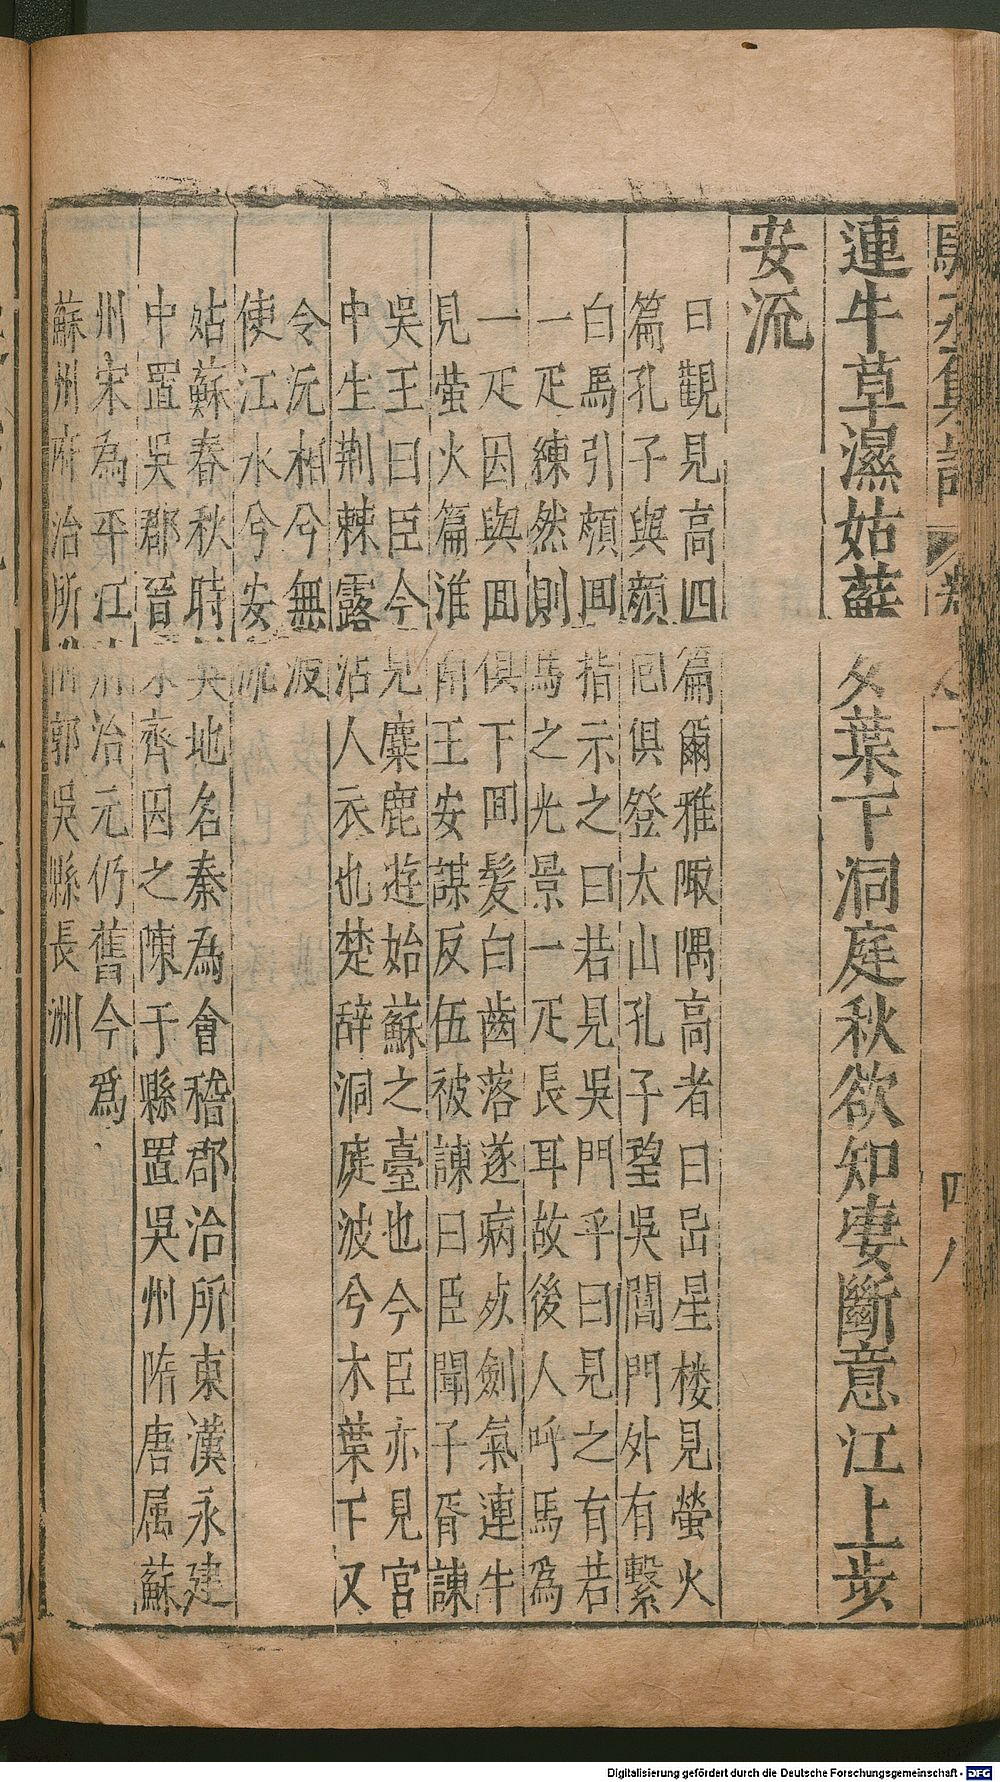 連牛草濕姑蘇夕葉下洞庭秋欲知悽斷意江上步
安流
日觀見高四篇爾雅陬隅高者曰出星楼見螢火
篇孔子與顔囘俱登太山孔子望吳閶門外有繫
白馬引顔囬指示之曰若見吳門乎曰見之有若
一疋練然則馬之光景一疋長耳故後人呼馬為
一疋因與囬俱下囬髪白齒落遂病死劍氣連牛
見螢火篇淮南王安謀反伍被諌曰臣聞子胥諌
吳王曰臣今見麋鹿遊姑蘇之臺也今臣亦見宮
中生荆棘露沾人衣也楚辞洞庭波兮木葉下又
令沅相兮無波
使江水兮安流
姑蘇春秋時吳地名秦為會稽郡治所東漢永建
中置吳郡晉宋齊因之陳于縣置吳州隋唐属蘇
州宋為平江府治元仍舊今為
蘇州府治所附郭吳縣長洲
四八
Digitalisierung gefördert durch die Deutsche Forschungsgemeinschaft - DFG